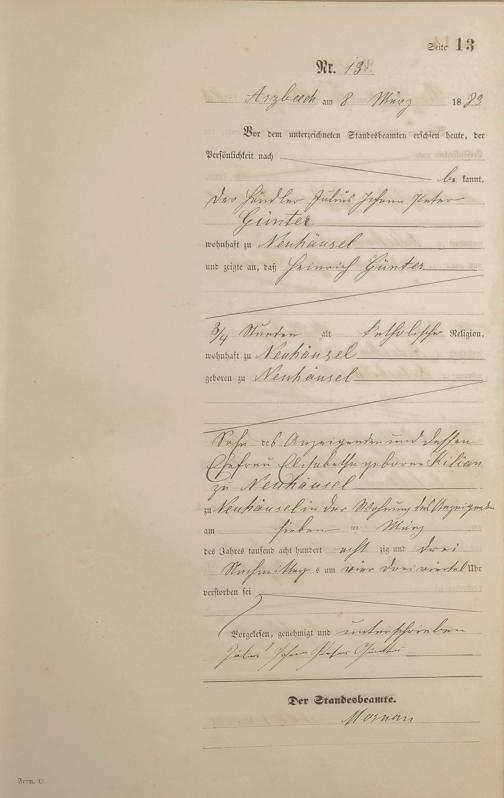 Seite 13
Nr. 13
Arzbach am 8 März 1883
Vor dem unterzeichneten Standesbeamten erschien heute, der
Persönlichkeit nach
be kannt,
Der Händler Julius Johann Peter
Günter
wohnhaft zu Neuhäusel
und zeigte an, daß Heinrich Günter
3/4 Stunden alt katholischer Religion,
wohnhaft zu Neuhäusel
geboren zu Neuhäusel
Sohn des Anzeigenden und dessen
Ehefrau Elisabetha geborene Kilian
zu Neuhäusel
zu Neuhäusel in der Wohnung des Anzeigenden
am sieben März
des Jahres tausend acht hundert acht zig und drei
Nachmittag s um vier dreiviertel Uhr
verstorben sei
Vorgelesen, genehmigt und unterschrieben
Julius Johann Peter Günter
Der Standesbeamte.
Form. C.